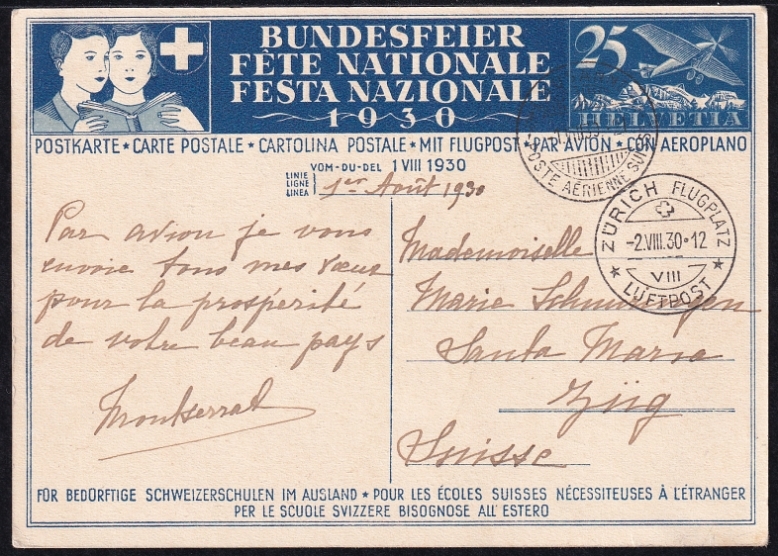 BUNDESFEIER
FÊTE NATIONALE
FESTA NAZIONALE
1930
25
HELVETIA
POSTKARTE ★ CARTE POSTALE ★ CARTOLINA POSTALE ★ MIT FLUGPOST ★ PAR AVION ★ CON AEROPLANO
VOM-DU-DEL 1 VIII 1930
LINIE
LIGNE
LINEA
1er Août 1930
POSTE AÉRIENNE SUISSE
ZÜRICH FLUGPLATZ
-2.VIII.30-12
VIII
LUFTPOST
Par avion je vous
envoie tous mes vœux
pour la prospérité
de votre beau pays
Montserrat
Mademoiselle
Marie
Santa Maria
Züg
Suisse
FÜR BEDÜRFTIGE SCHWEIZERSCHULEN IM AUSLAND ★ POUR LES ÉCOLES SUISSES NÉCESSITEUSES À L'ÉTRANGER
PER LE SCUOLE SVIZZERE BISOGNOSE ALL'ESTERO